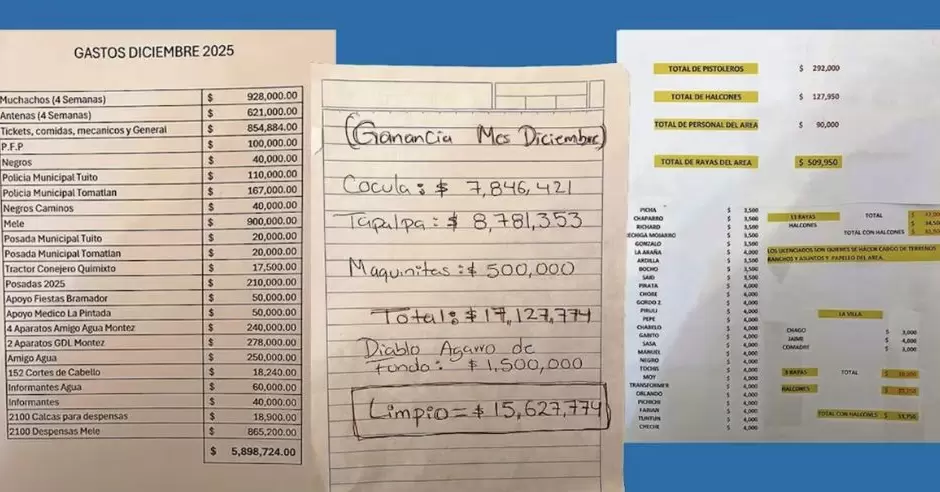 GASTOS DICIEMBRE 2025
Muchachos (4 Semanas) $ 928,000.00
Antenas (4 Semanas) $ 621,000.00
Tickets, comidas, mecanicos y General $ 854,884.00
P.F.P $ 100,000.00
Negros $ 40,000.00
Policia Municipal Tuito $ 110,000.00
Policia Municipal Tomatlan $ 167,000.00
Negros Caminos $ 40,000.00
Mele $ 900,000.00
Posada Municipal Tuito $ 20,000.00
Posada Municipal Tomatlan $ 20,000.00
Tractor Conejero Quimixto $ 17,500.00
Posadas 2025 $ 210,000.00
Apoyo Fiestas Bramador $ 50,000.00
Apoyo Medico La Pintada $ 50,000.00
4 Aparatos Amigo Agua Montez $ 240,000.00
2 Aparatos GDL Montez $ 278,000.00
Amigo Agua $ 250,000.00
152 Cortes de Cabello $ 18,240.00
Informantes Agua $ 60,000.00
Informantes $ 40,000.00
2100 Calcas para despensas $ 18,900.00
2100 Despensas Mele $ 865,200.00
$ 5,898,724.00
(Ganancia Mes Diciembre)
Cocula: $ 7,846,421
Tapalpa: $ 8,781,353
Maquinitas: $ 500,000
Total: $ 17,127,774
Diablo Agarro de
Fondo: $ 1,500,000
Limpio = $ 15,627,774
TOTAL DE PISTOLEROS $ 292,000
TOTAL DE HALCONES $ 127,950
TOTAL DE PERSONAL DEL AREA $ 90,000
TOTAL DE RAYAS DEL AREA $ 509,950
PICHA $ 3,500
CHAPARRO $ 3,500
RICHARD $ 3,500
MOJARRO $ 3,500
GONZALO $ 3,500
LA ARAÑA $ 4,000
ARDILLA $ 3,500
BOCHO $ 3,500
SAID $ 3,500
PIRATA $ 4,000
CHORE $ 4,000
GORDO 2 $ 4,000
PIRULI $ 4,000
PEPE $ 4,000
CHABELO $ 4,000
GABITO $ 4,000
SASA $ 4,000
MANUEL $ 4,000
NEGRO $ 4,000
TOCHIS $ 4,000
MOY $ 4,000
TRANSFORMER $ 4,000
ORLANDO $ 4,000
PICHICHI $ 4,000
FABIAN $ 4,000
TUNTUN $ 4,000
CHECHE $ 4,000
13 RAYAS TOTAL $
HALCONES $
TOTAL CON HALCONES $
LOS LICENCIADOS SON QUIENES SE HACEN CARGO DE TERRENOS
RANCHOS Y ASUNTOS Y PAPELEO DEL AREA.
LA VILLA
CHAGO $ 3,000
JAIME $ 4,000
COMADRE $ 3,000
3 RAYAS TOTAL $
HALCONES $
TOTAL CON HALCONES $